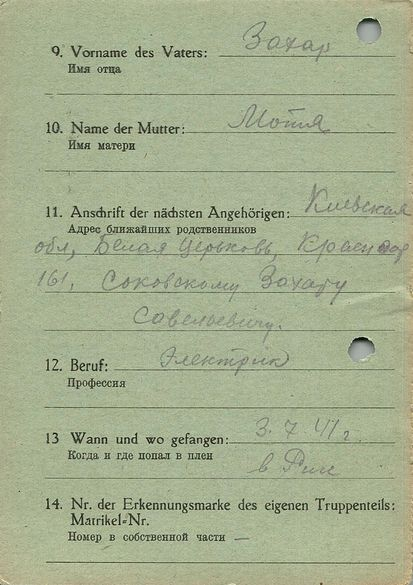 9. Vorname des Vaters: Захар
Имя отца
10. Name der Mutter: Мотля
Имя матери
11. Anschrift der nächsten Angehörigen: Киевская
Адрес ближайших родственников
обл, Белая Церьковь,
161, Соковскому Захару
Савельевичу.
12. Beruf: Электрик
Профессия
13 Wann und wo gefangen: 3. 7. 41 г.
Когда и где попал в плен
в Риге
14. Nr. der Erkennungsmarke des eigenen Truppenteils:
Matrikel-Nr.
Номер в собственной части —